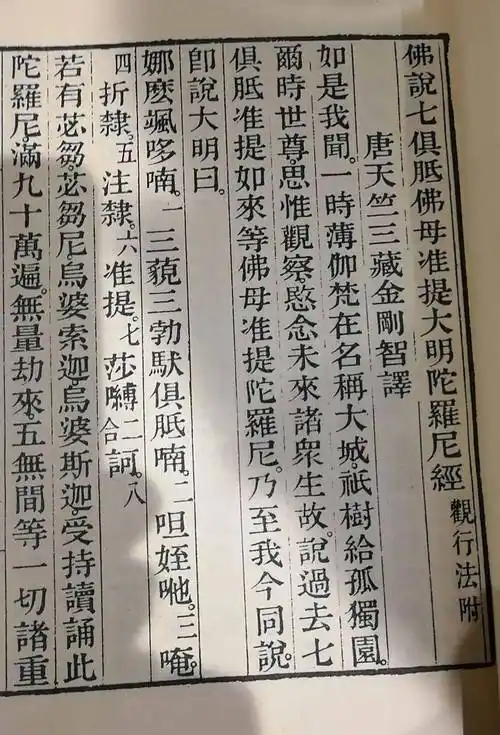 佛說七俱胝佛母准提大明陀羅尼經觀行法附
唐天竺三藏金剛智譯
如是我聞。一時薄伽梵在名稱大城。祇樹給孤獨園。
爾時世尊。思惟觀察。愍念未來諸衆生故。說過去七
俱胝准提如來等佛母准提陀羅尼。乃至我今同說。
卽說大明曰。
娜麽颯哆喃。一三藐三勃馱俱胝喃。二呾姪咃。三唵。
四折隸。五注隸。六准提。七莎嚩二合訶。八
若有苾芻苾芻尼。烏婆索迦。烏婆斯迦。受持讀誦此
陀羅尼。滿九十萬遍。無量劫來。五無間等一切諸重